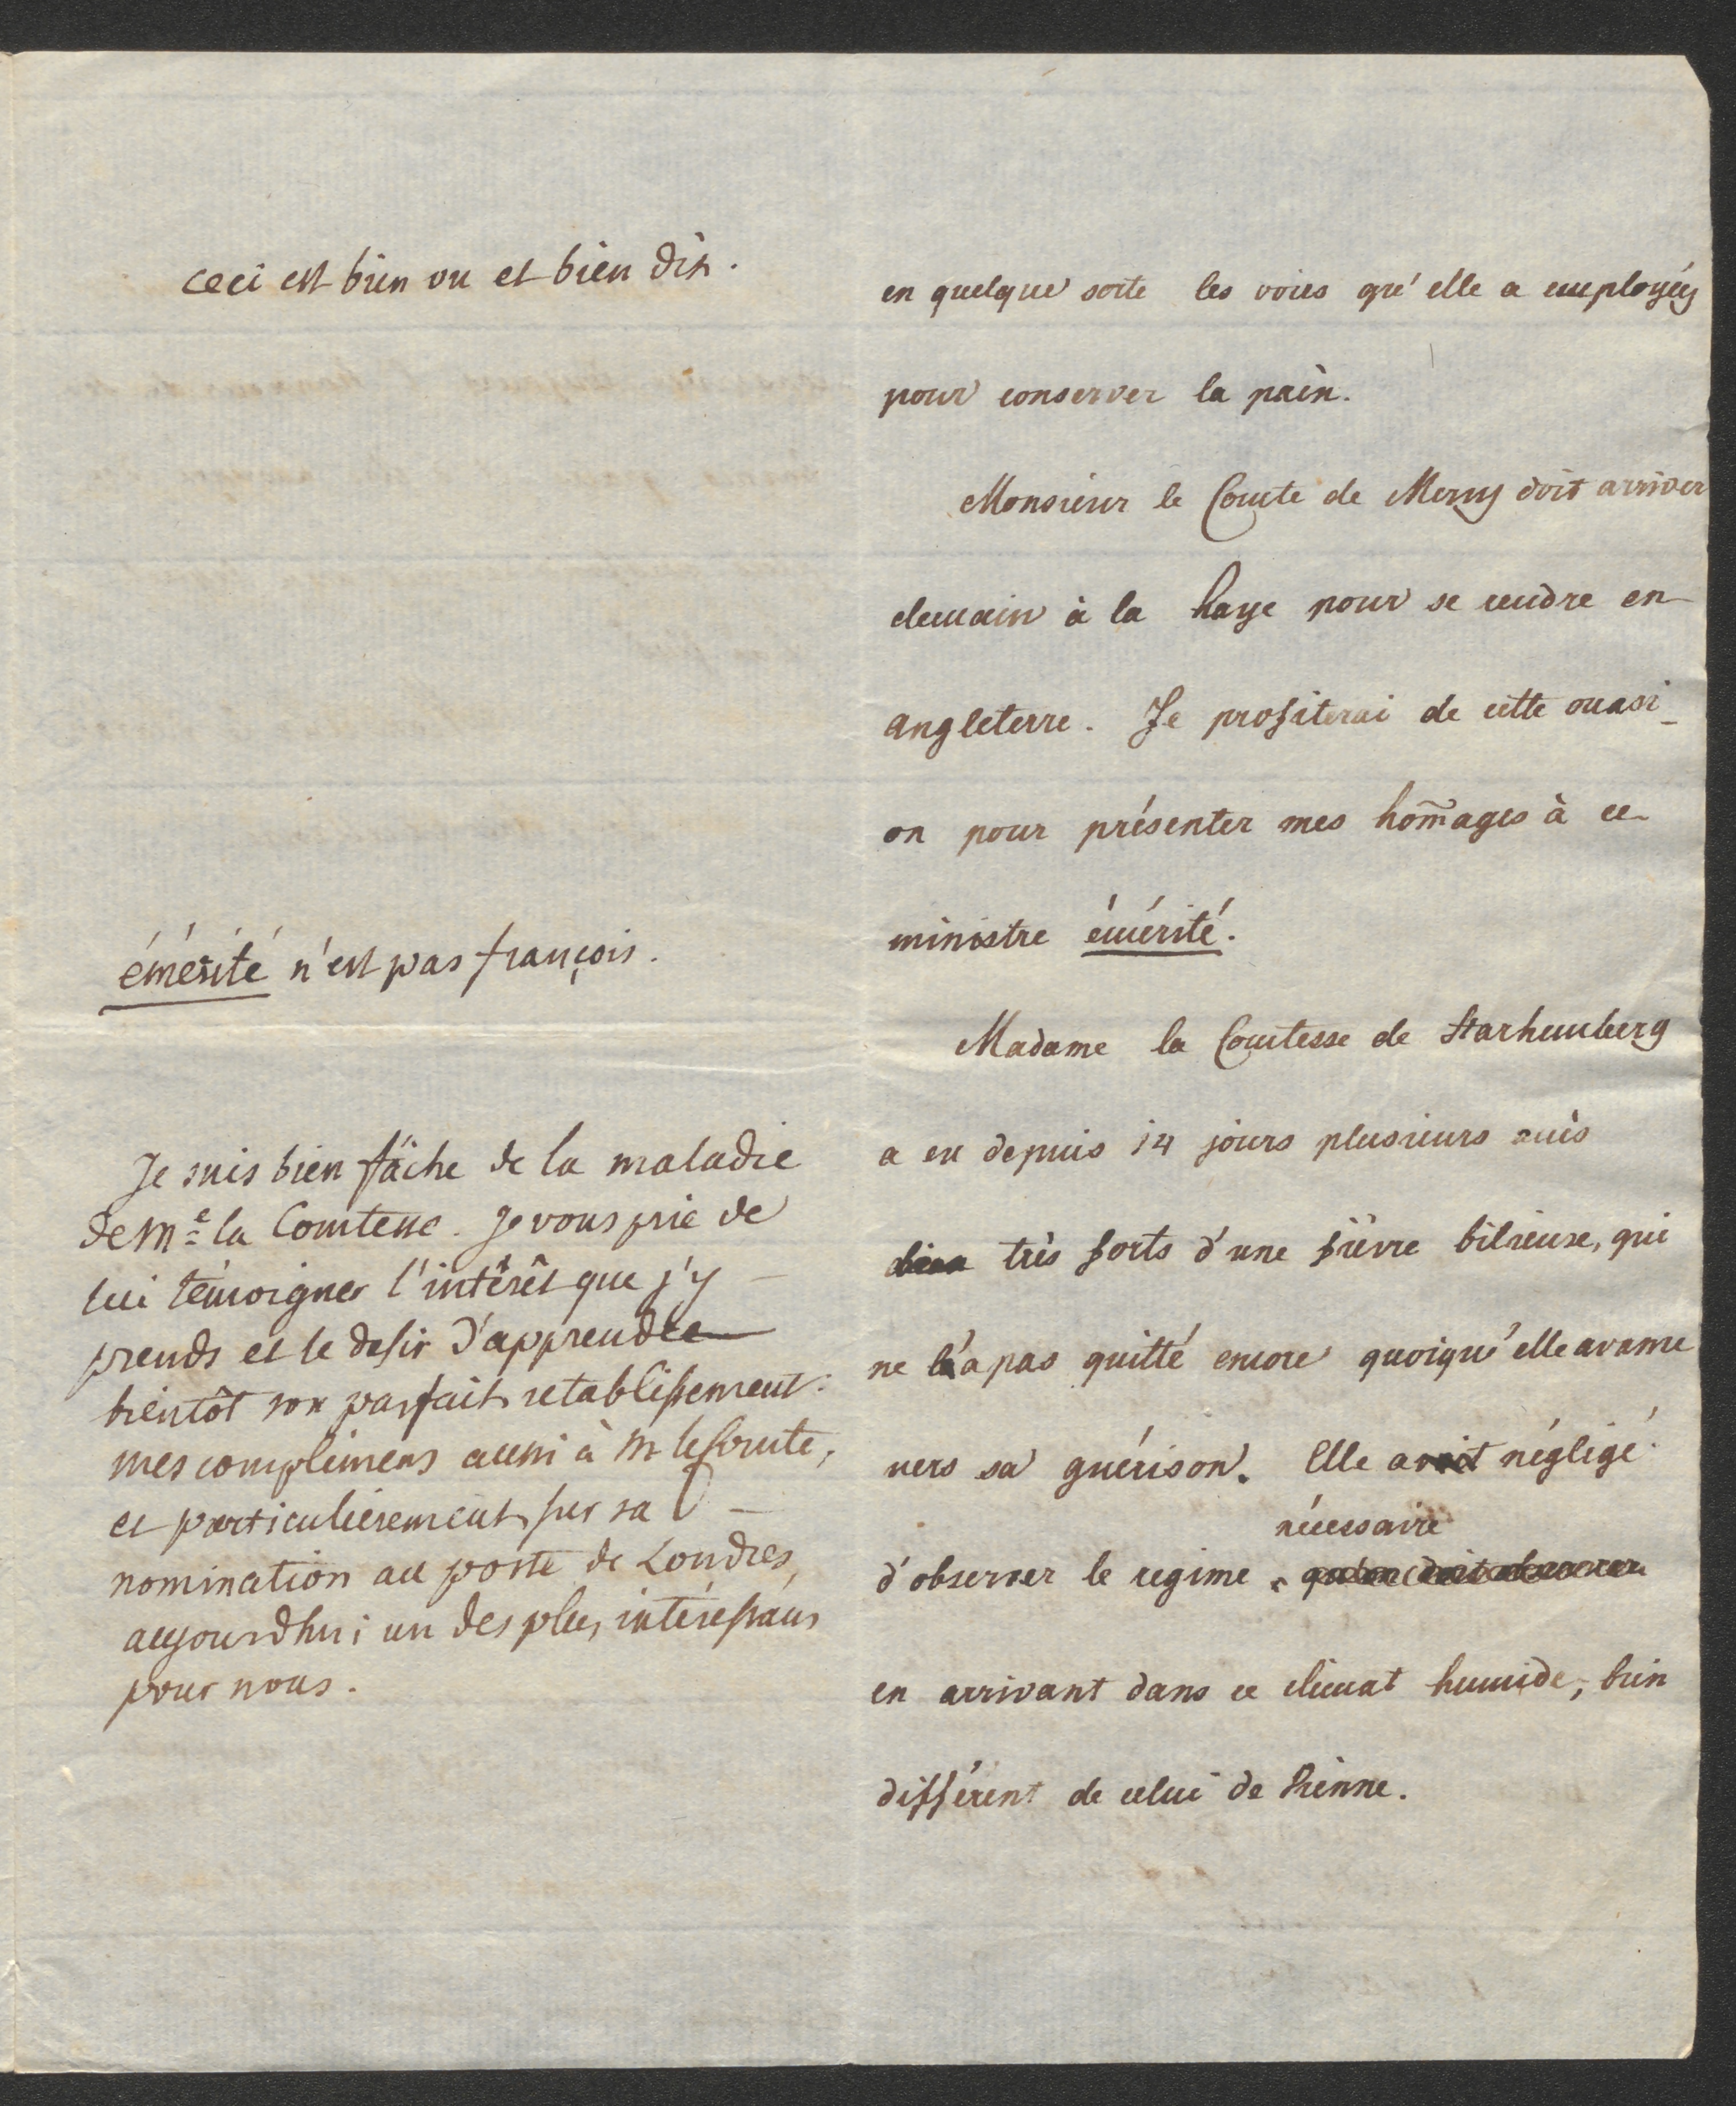 ceci est bien vu et bien dit.
émérité n'est pas françois.
Je suis bien fâché de la maladie
de Me la Comtesse. Je vous prie de
lui témoigner l'intérêt que j'y
prends et le desir d'apprendre
bientôt son parfait retablissement.
mes complimens aussi à Mr le Comte,
et particulièrement sur sa
nomination au poste de Londres,
aujourdhui un des plus intéressans
pour nous.
en quelque sorte les voies qu'elle a employées
pour conserver la paix.
Monsieur le Comte de Mercy doit arriver
demain à la haye pour se rendre en
angleterre. Je profiterai de cette occasi-
on pour présenter mes hom̃ages à ce
ministre émérité.
Madame la Comtesse de Starhemberg
a eu depuis 14 jours plusieurs accès
très forts d'une fièvre bilieuse, qui
ne l'a pas quitté encore quoiqu'elle avance
vers sa guérison. Elle avoit négligé
nécessaire
d'observer le regime qu'on doit observer
en arrivant dans ce climat humide, bien
différent de celui de Vienne.